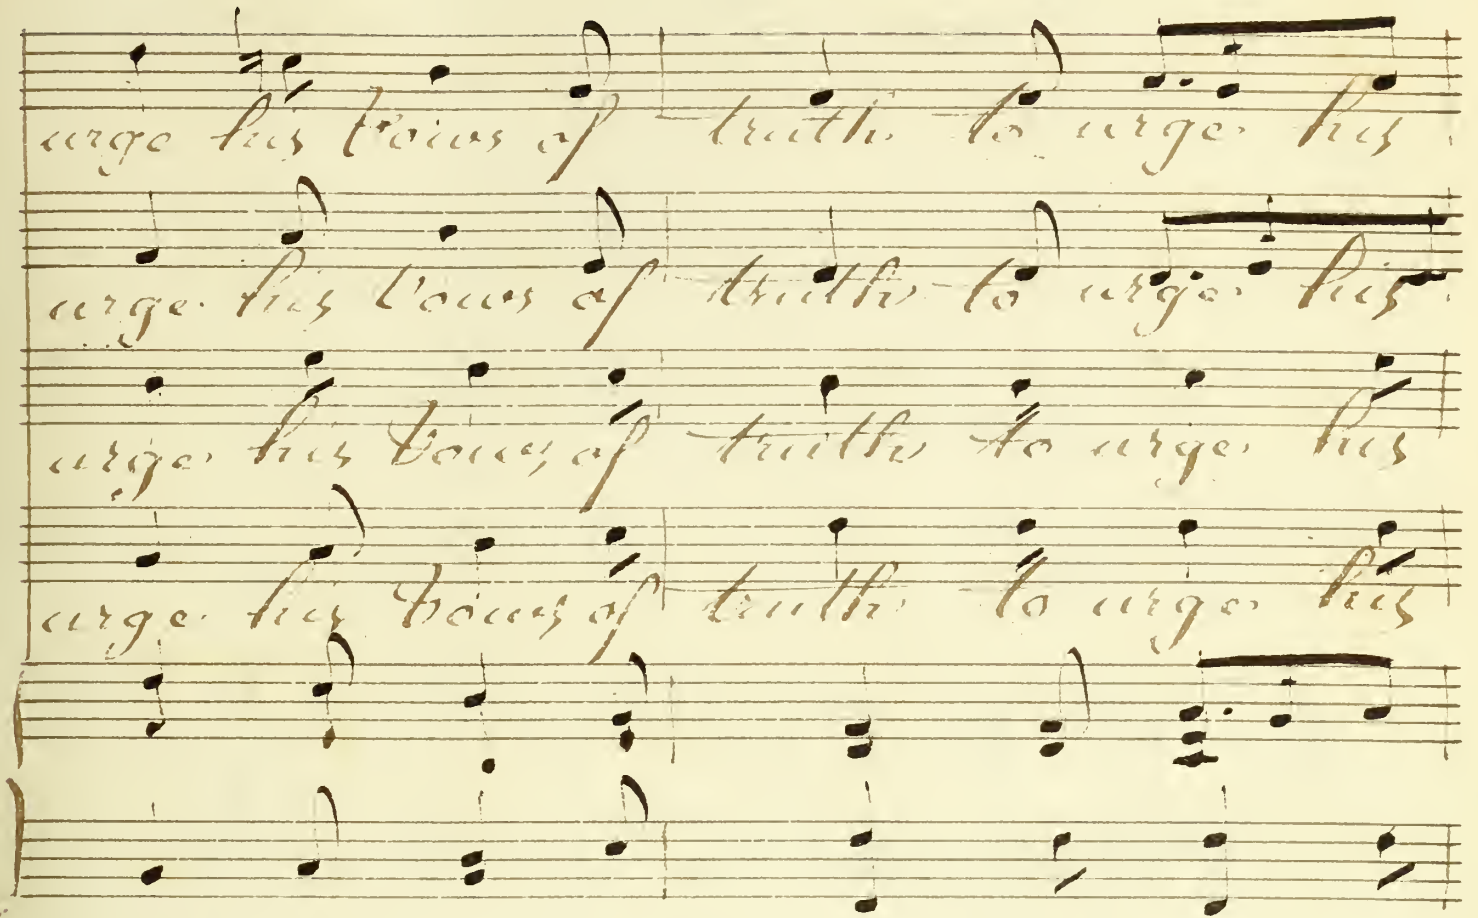 urge his Vows of truth to urge his
urge his Vows of truth to urge his
urge his Vows of truth to urge his
urge his Vows of truth to urge his